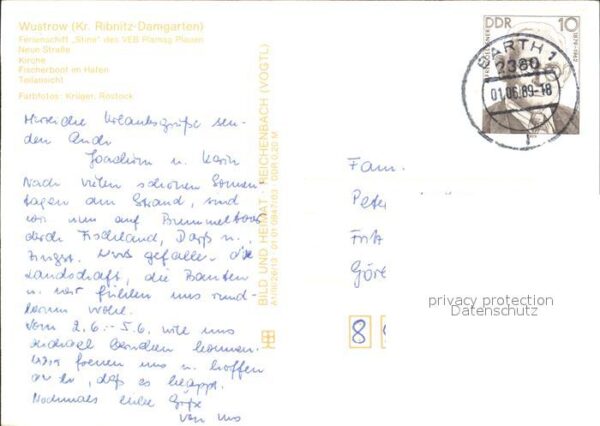 Wustrow (Kr. Ribnitz-Damgarten)
Ferienschiff „Stine" des VEB Plamag Plauen
Neue Straße
Kirche
Fischerboot im Hafen
Teilansicht
Farbfotos: Krüger, Rostock
DDR 10
BARTH 1
2380
01.06.89-18
Herzliche Urlaubsgrüße sen-
den Euch
Joachim u. Karin
Nach vielen schönen Sonnen-
tagen am Strand, sind
wir nun auf Bummeltour
durch Fischland, Darß u.
Zingst. Uns gefallen die
Landschaft, die Bauten
u. wir fühlen uns rund-
herum wohl.
Vom 2.6.-5.6. will uns
Michael besuchen kommen.
Wir freuen uns u. hoffen
, daß es klappt.
Nochmals liebe Grüße
von uns
BILD UND HEIMAT REICHENBACH (VOGTL)
DDR 0,20 M
Fam.
Peter
Fritz
Gör
8
privacy protection
Datenschutz